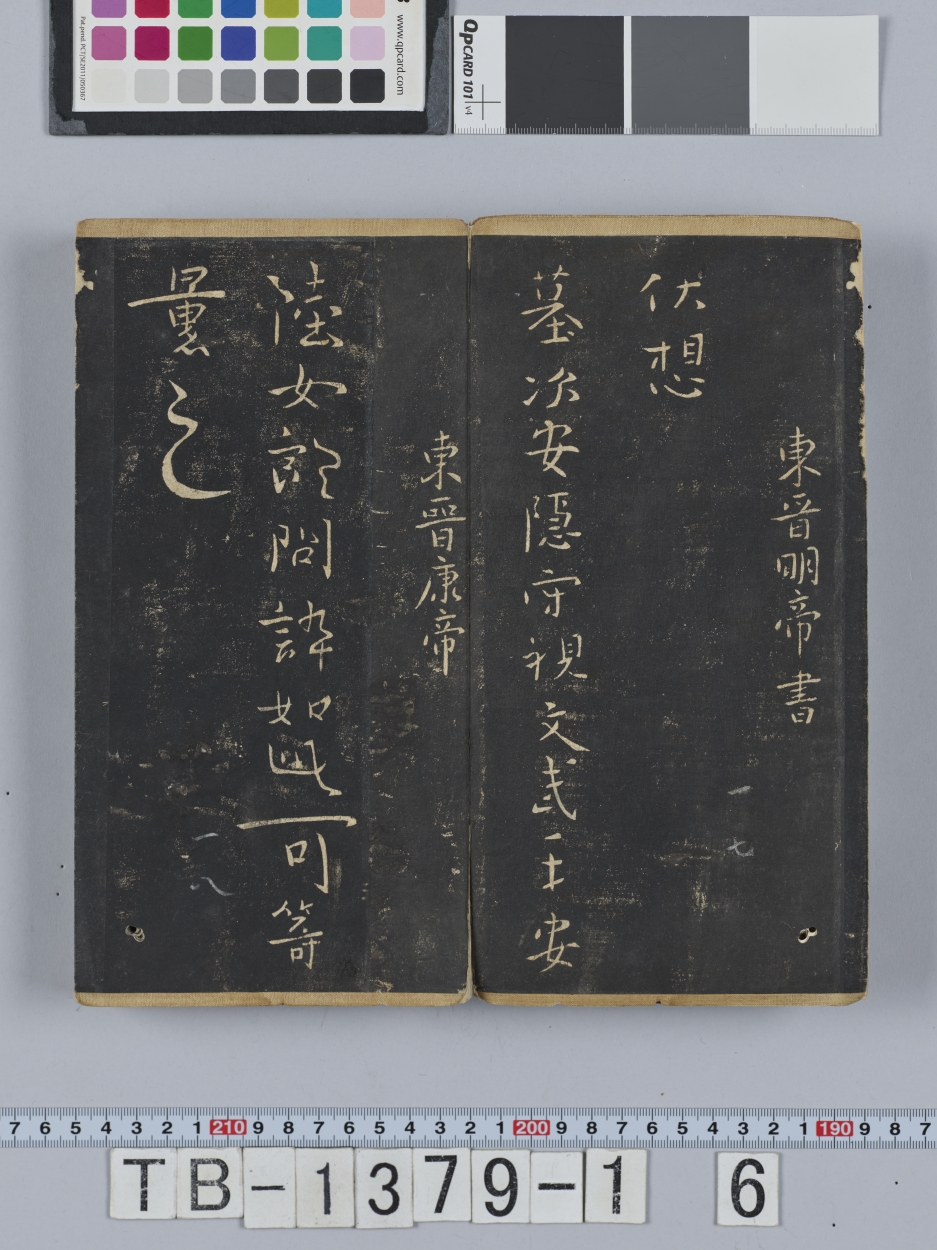 www.qpcard.com
Pat.pend. PCT/SE2011/050367
QpCARD 101 v4
東晉明帝書
伏想
墓次安隱守視文武一十安
東晉康帝
陸女郎問訃如此可等
之
一七
一八
7 6 5 4 3 2 1 210 9 8 7 6 5 4 3 2 1 200 9 8 7 6 5 4 3 2 1 190 9 8 7
TB-1379-1 6